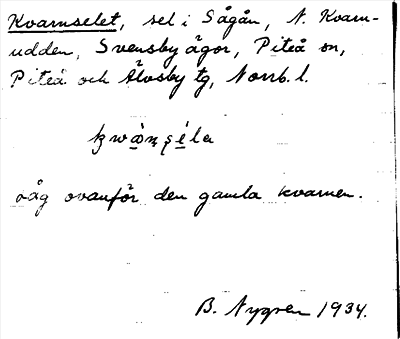 Kvarnselet, sel i Sågån, N. Kvarn-
udden, Svensby ägor, Piteå sn,
Piteå och Älvsby tg, Norrb. l.
såg ovanför den gamla kvarnen.
B. Nygren 1934.